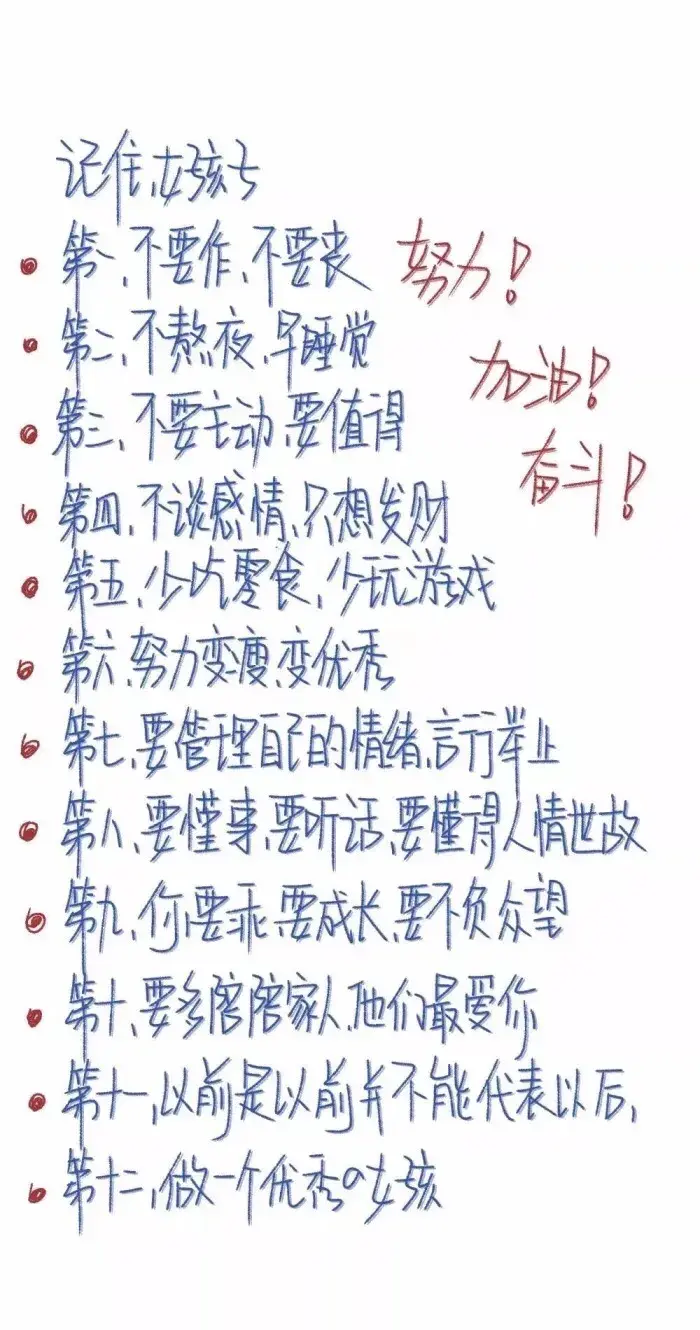 记住,女孩子
第一、不要作、不要丧
努力!
第二、不熬夜,早睡觉
加油!
第三、不要主动,要值得
奋斗!
第四、不谈感情、只想发财
第五、少吃零食、少玩游戏
第六、努力变瘦、变优秀
第七、要管理自己的情绪、言行举止
第八、要懂事、要听话、要懂得人情世故
第九、你要乖、要成长、要不负众望
第十、要多陪陪家人、他们最爱你
第十一、以前是以前并不能代表以后,
第十二、做一个优秀の女孩